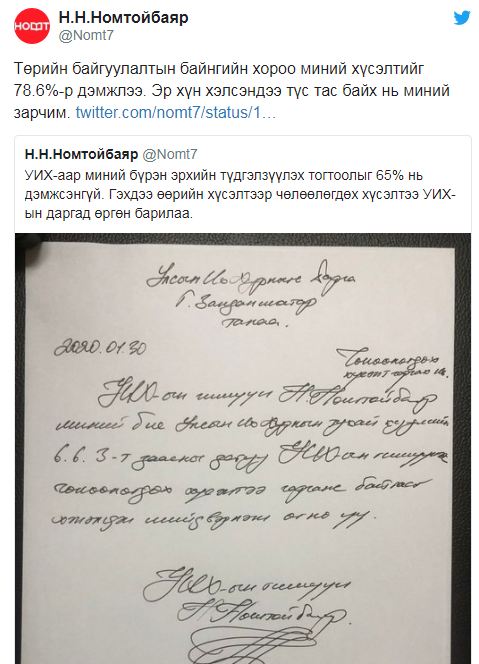 НОМТ
Н.Н.Номтойбаяр
@Nomt7
Төрийн байгуулалтын байнгийн хороо миний хүсэлтийг
78.6%-р дэмжлээ. Эр хүн хэлсэндээ түс тас байх нь миний
зарчим. twitter.com/nomt7/status/1…
Н.Н.Номтойбаяр @Nomt7
УИХ-аар миний бүрэн эрхийн түдгэлзүүлэх тогтоолыг 65% нь
дэмжсэнгүй. Гэхдээ өөрийн хүсэлтээр чөлөөлөгдөх хүсэлтээ УИХ-
ын даргад өргөн барилаа.
Улсын Их Хурлын дарга
Г. Занданшатар
танаа.
2020.01.30
Чөлөөлөгдөх
хүсэлт гаргах нь.
УИХ-ын гишүүн Н.Номтойбаяр
миний бие Улсын Их Хурлын тухай хуулийн
6.6.3-т заасны дагуу УИХ-ын гишүүнээс
чөлөөлөгдөх хүсэлтээ гаргаж байгааг
хэлэлцэн шийдвэрлэж өгнө үү.
УИХ-ын гишүүн
Н.Номтойбаяр